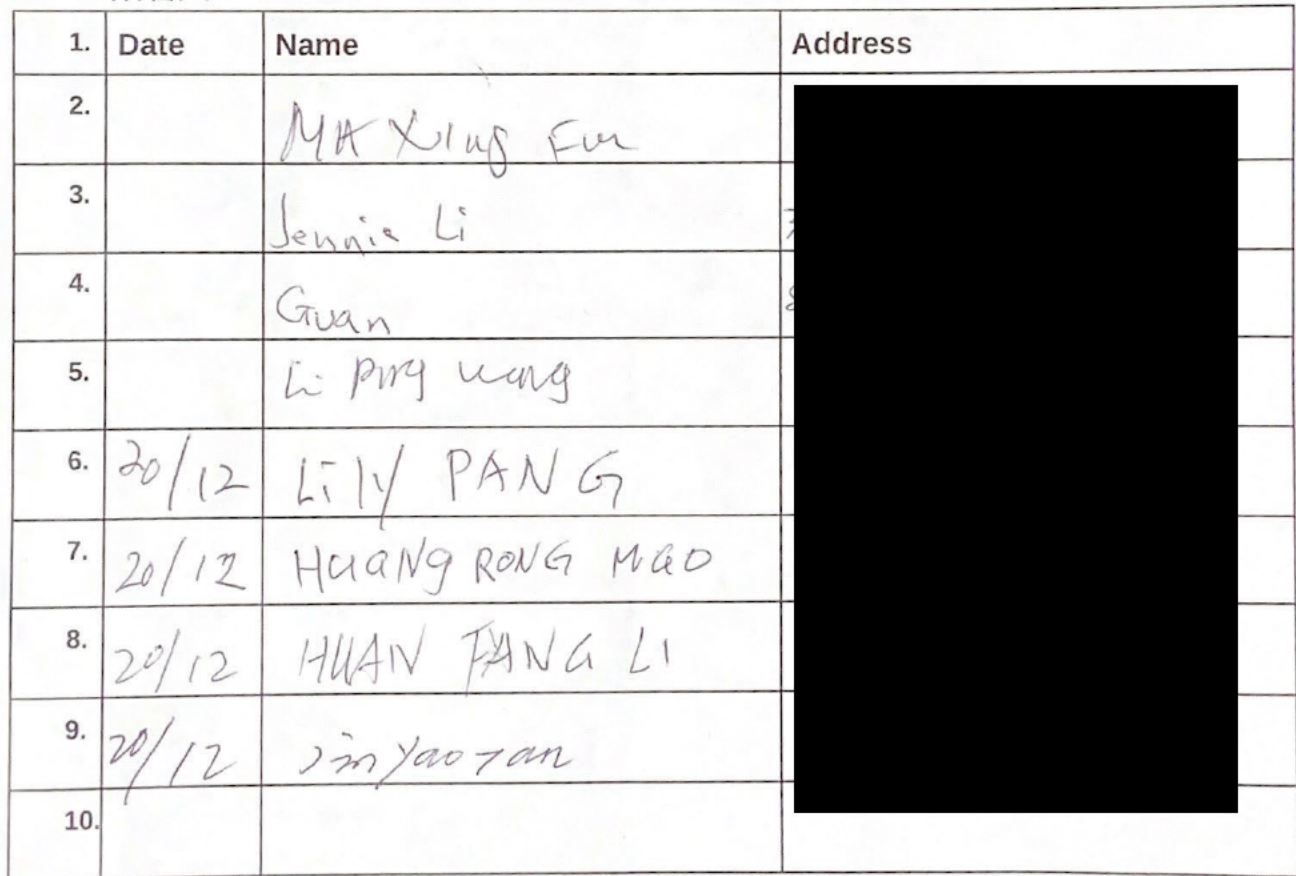 1. Date Name Address
2. MA Xing Fun
3. Jennie Li
4. Guan
5. Li Ping wang
6. 20/12 Lily PANG
7. 20/12 HUANG RONG MAO
8. 20/12 HUAN FANG LI
9. 20/12
10.